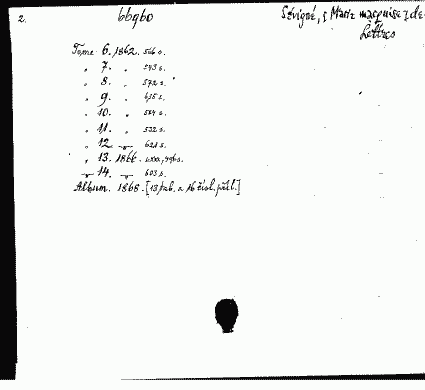 2. 66960 Sévigné, Marie marquise de
Lettres
Tome 6. 1862. 566 s.
„ 7. „ 543 s.
„ 8. „ 572 s.
„ 9. „ 615 s.
„ 10. „ 564 s.
„ 11. „ 532 s.
„ 12. „ 621 s.
„ 13. 1866. s.
„ 14. „ 603 s.
Album. 1868. [13 tab. a 16 čísl. příl.]